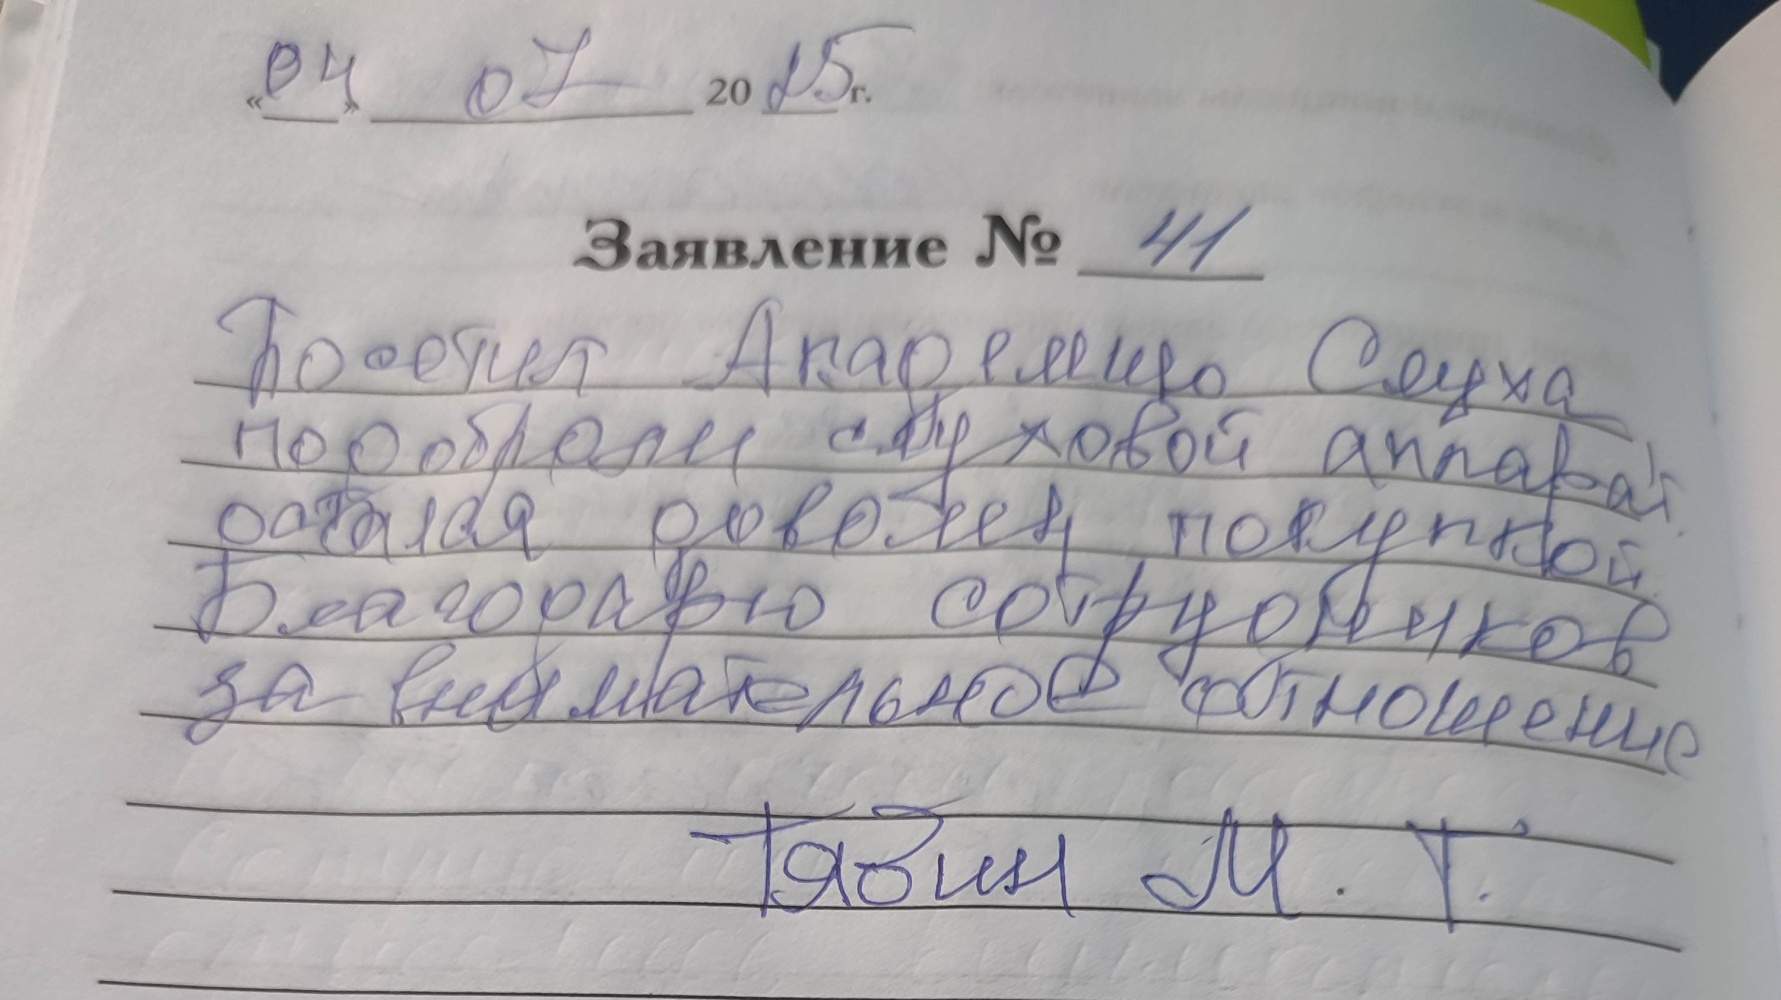 «04» 07 2025г.
Заявление № 41
Посетил Академию Слуха
подобрали слуховой аппарат
остался доволен покупкой
Благодарю сотрудников
за внимательное отношение
Тябин М. Г.